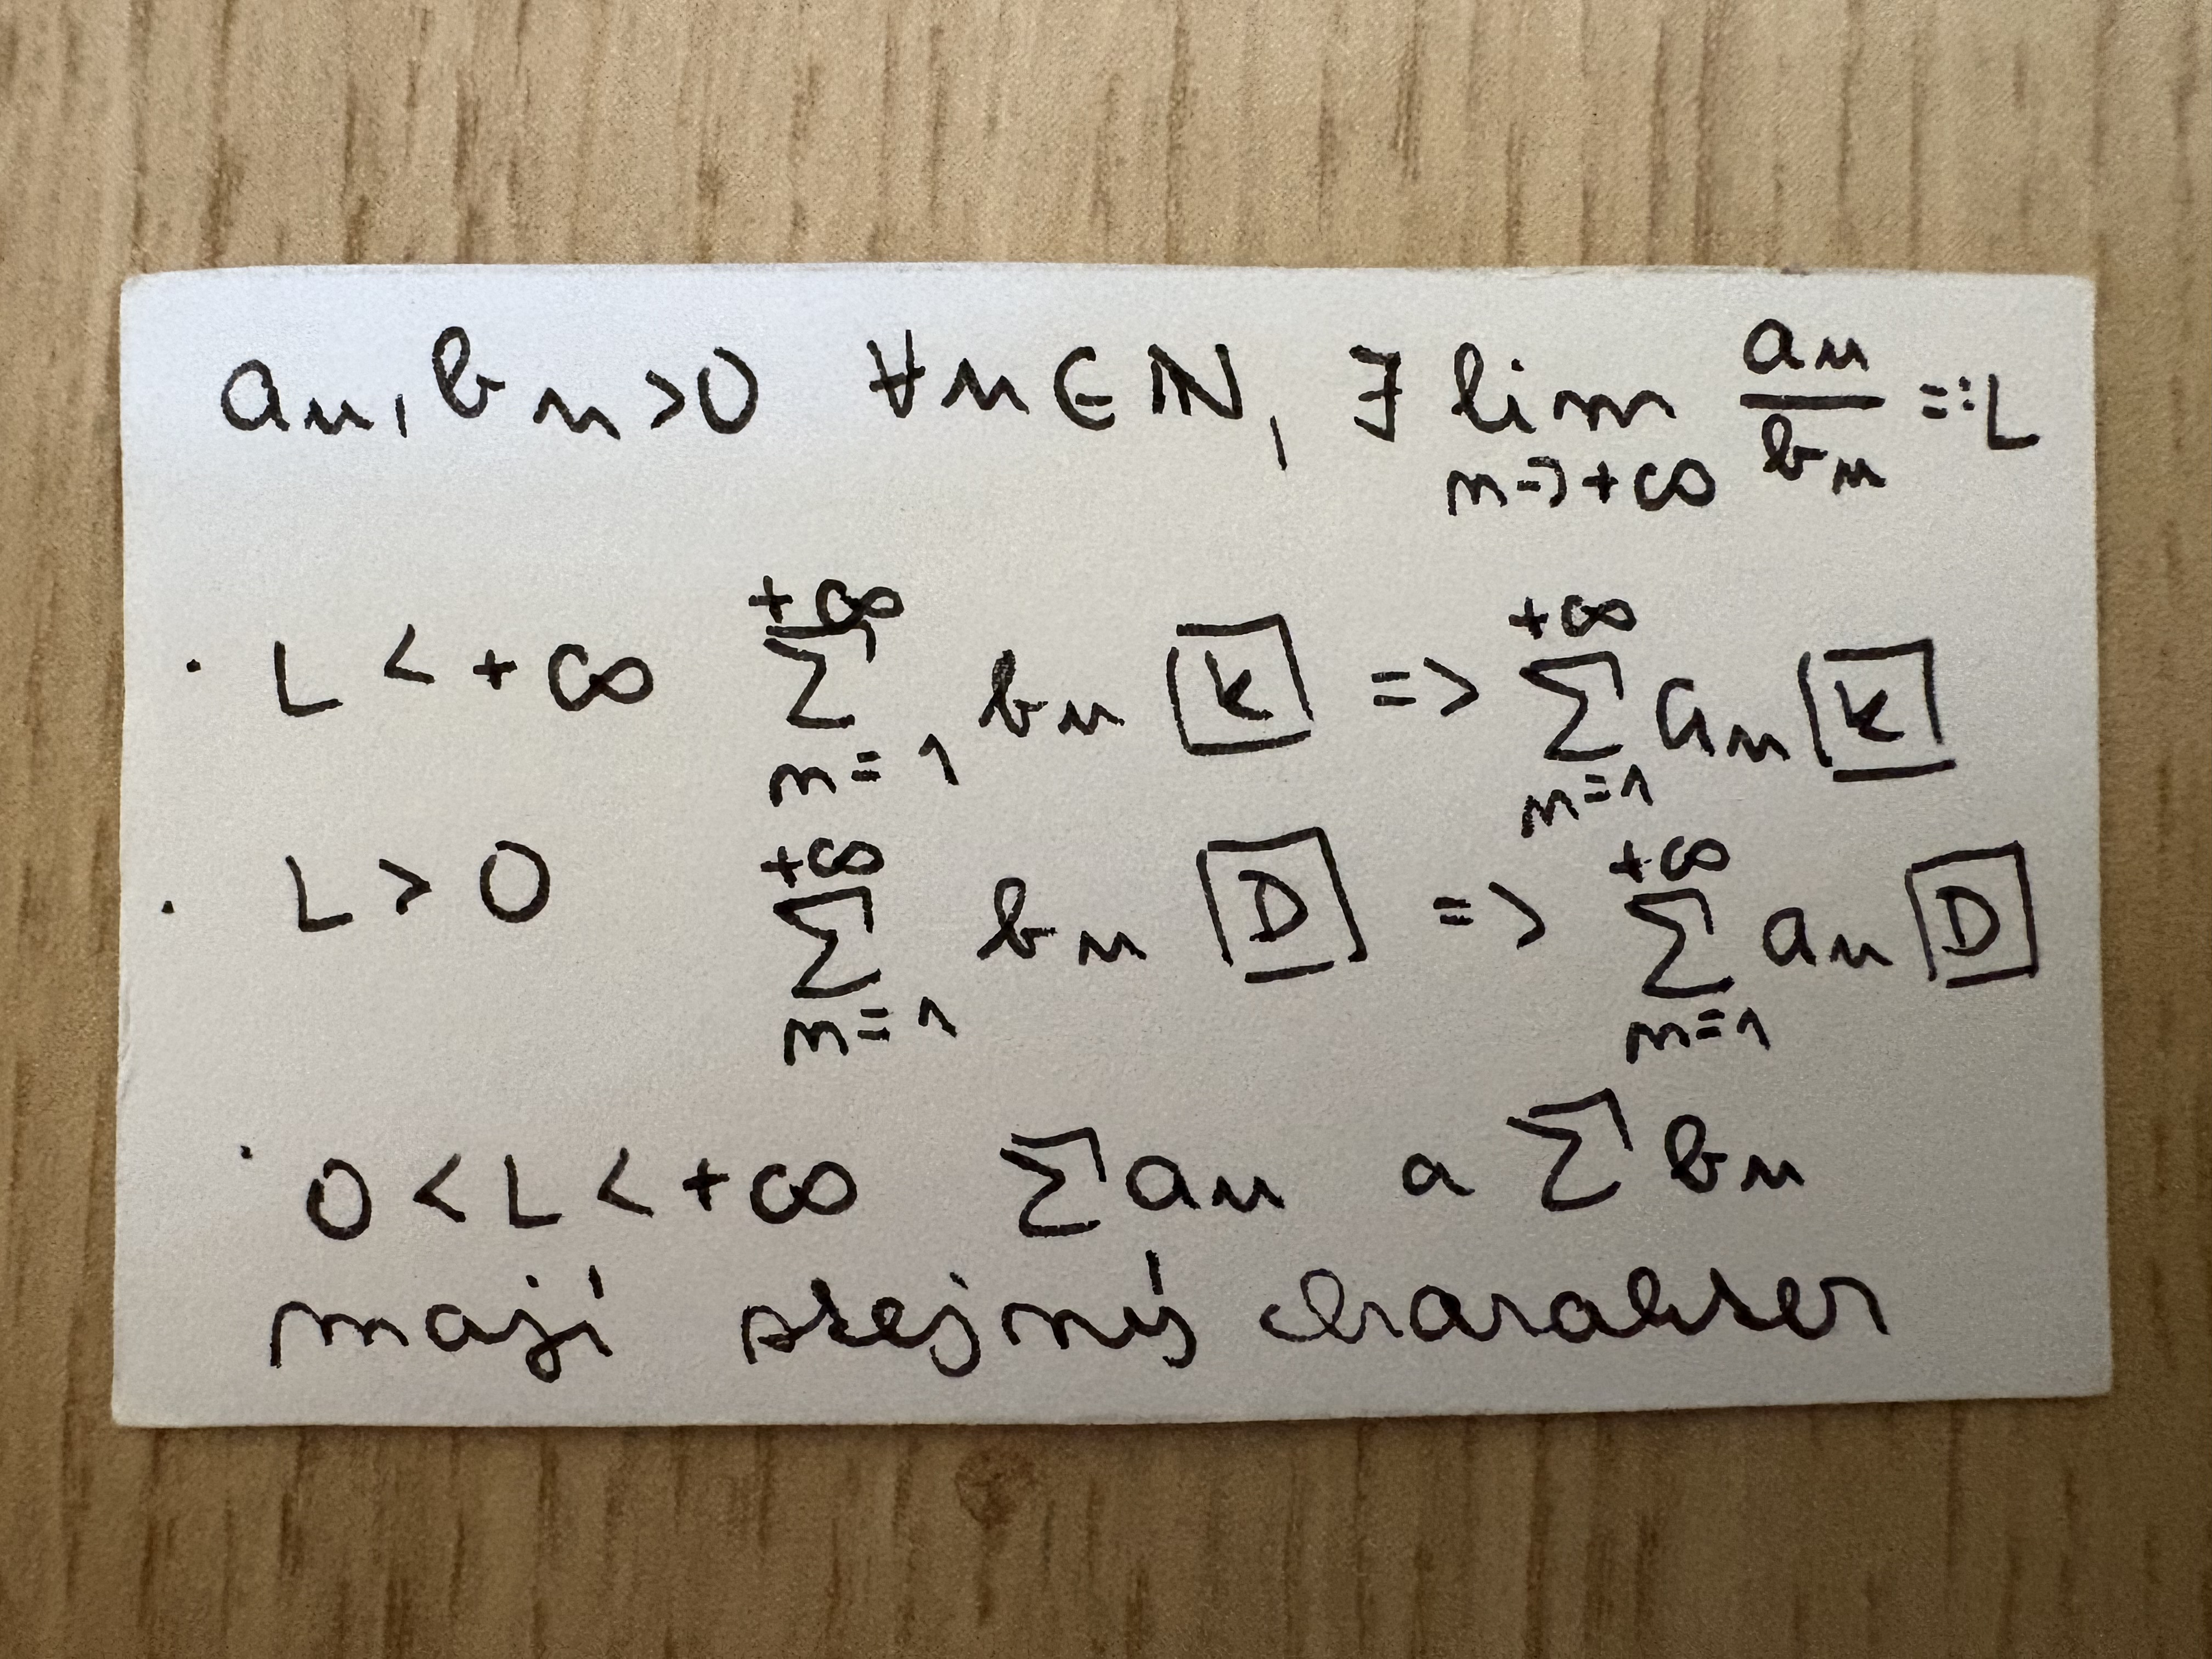 aₙ, bₙ > 0 ∀n ∈ ℕ, ∃ lim_{n→+∞} aₙ/bₙ =: L
· L < +∞ ∑_{n=1}^{+∞} bₙ [K] => ∑_{n=1}^{+∞} aₙ [K]
· L > 0 ∑_{n=1}^{+∞} bₙ [D] => ∑_{n=1}^{+∞} aₙ [D]
· 0 < L < +∞ ∑aₙ a ∑bₙ
mají stejný charakter